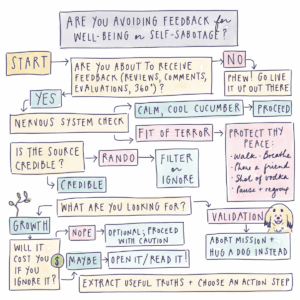 ARE YOU AVOIDING FEEDBACK for
WELL-BEING or SELF-SABOTAGE?
START
ARE YOU ABOUT TO RECEIVE
FEEDBACK (REVIEWS, COMMENTS,
EVALUATIONS, 360°)?
NO
PHEW! GO LIVE
IT UP OUT THERE
YES
NERVOUS SYSTEM CHECK
CALM, COOL CUCUMBER
PROCEED
FIT OF TERROR
PROTECT THY
PEACE:
• Walk • Breathe
• Phone a friend
• Shot of vodka
• Pause + regroup
IS THE SOURCE
CREDIBLE?
RANDO
FILTER
or
IGNORE
CREDIBLE
WHAT ARE YOU LOOKING FOR?
GROWTH
VALIDATION
NOPE
OPTIONAL; PROCEED
WITH CAUTION
ABORT MISSION +
HUG A DOG INSTEAD
WILL IT
COST YOU $
IF YOU
IGNORE IT?
MAYBE
OPEN IT / READ IT!
EXTRACT USEFUL TRUTHS + CHOOSE AN ACTION STEP